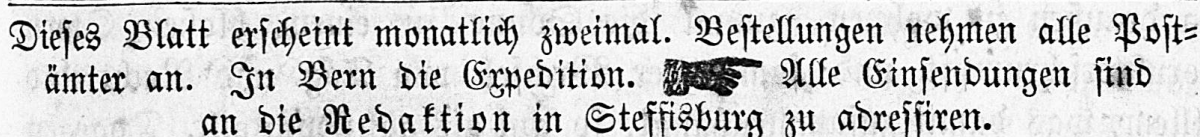 Dieses Blatt erscheint monatlich zweimal. Bestellungen nehmen alle Post=
ämter an. In Bern die Expedition. ☛ Alle Einsendungen sind
an die Redaktion in Steffisburg zu adressiren.